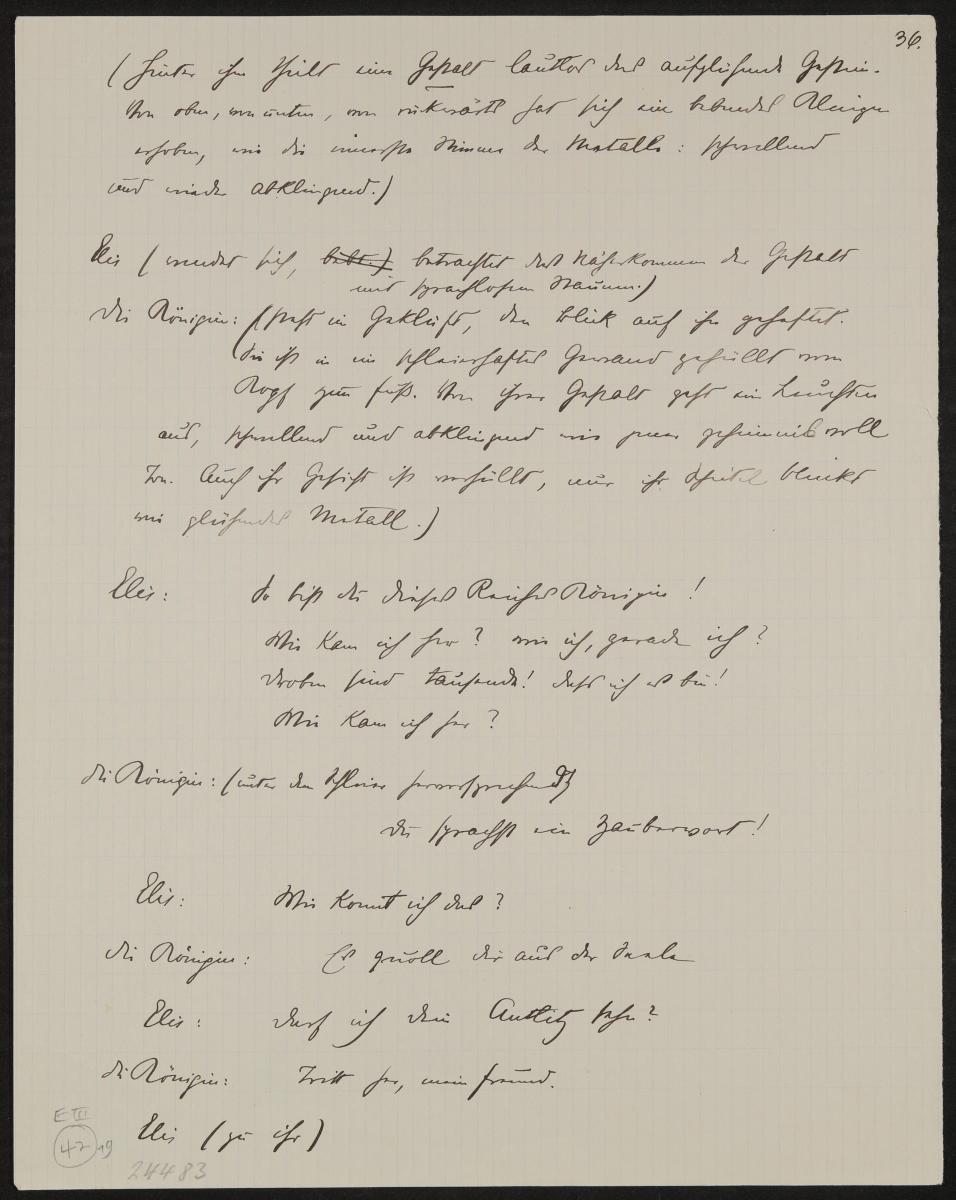 36.
(Hinter ihm theilt eine Gestalt lautlos das aufglühende Gestein.
Von oben, von unten, von rückwärts hat sich ein bebendes Klingen
erhoben, wie die innerste Stimme der Metalle: schwellend
und wieder abklingend.)
Elis (wendet sich, bebt.) betrachtet das Näherkommen der Gestalt
mit sprachlosem Staunen.)
die Königin: (steht im Geklüft, den Blick auf ihn geheftet.
Sie ist in ein schleierhaftes Gewand gehüllt vom
Kopf zum Fuß. Von ihrer Gestalt geht ein Leuchten
aus, schwellend und abklingend wie jener geheimnisvoll
Ton. Auch ihr Gesicht ist verhüllt, nur ihr Scheitel blinkt
wie glühendes Metall.)
Elis: So bist du dieses Reiches Königin!
Wie kam ich her? wie ich, gerade ich?
Droben sind tausende! dass ich es bin!
Wie kam ich her?
die Königin: (unter dem Schleier hervorsprechend)
Du sprachst ein Zauberwort!
Elis: Wie konnt ich das?
die Königin: Es quoll dir aus der Seele
Elis: Darf ich dein Antlitz sehn?
die Königin: Tritt her, mein Freund.
Elis (zu ihr)
E III
47 19
24483